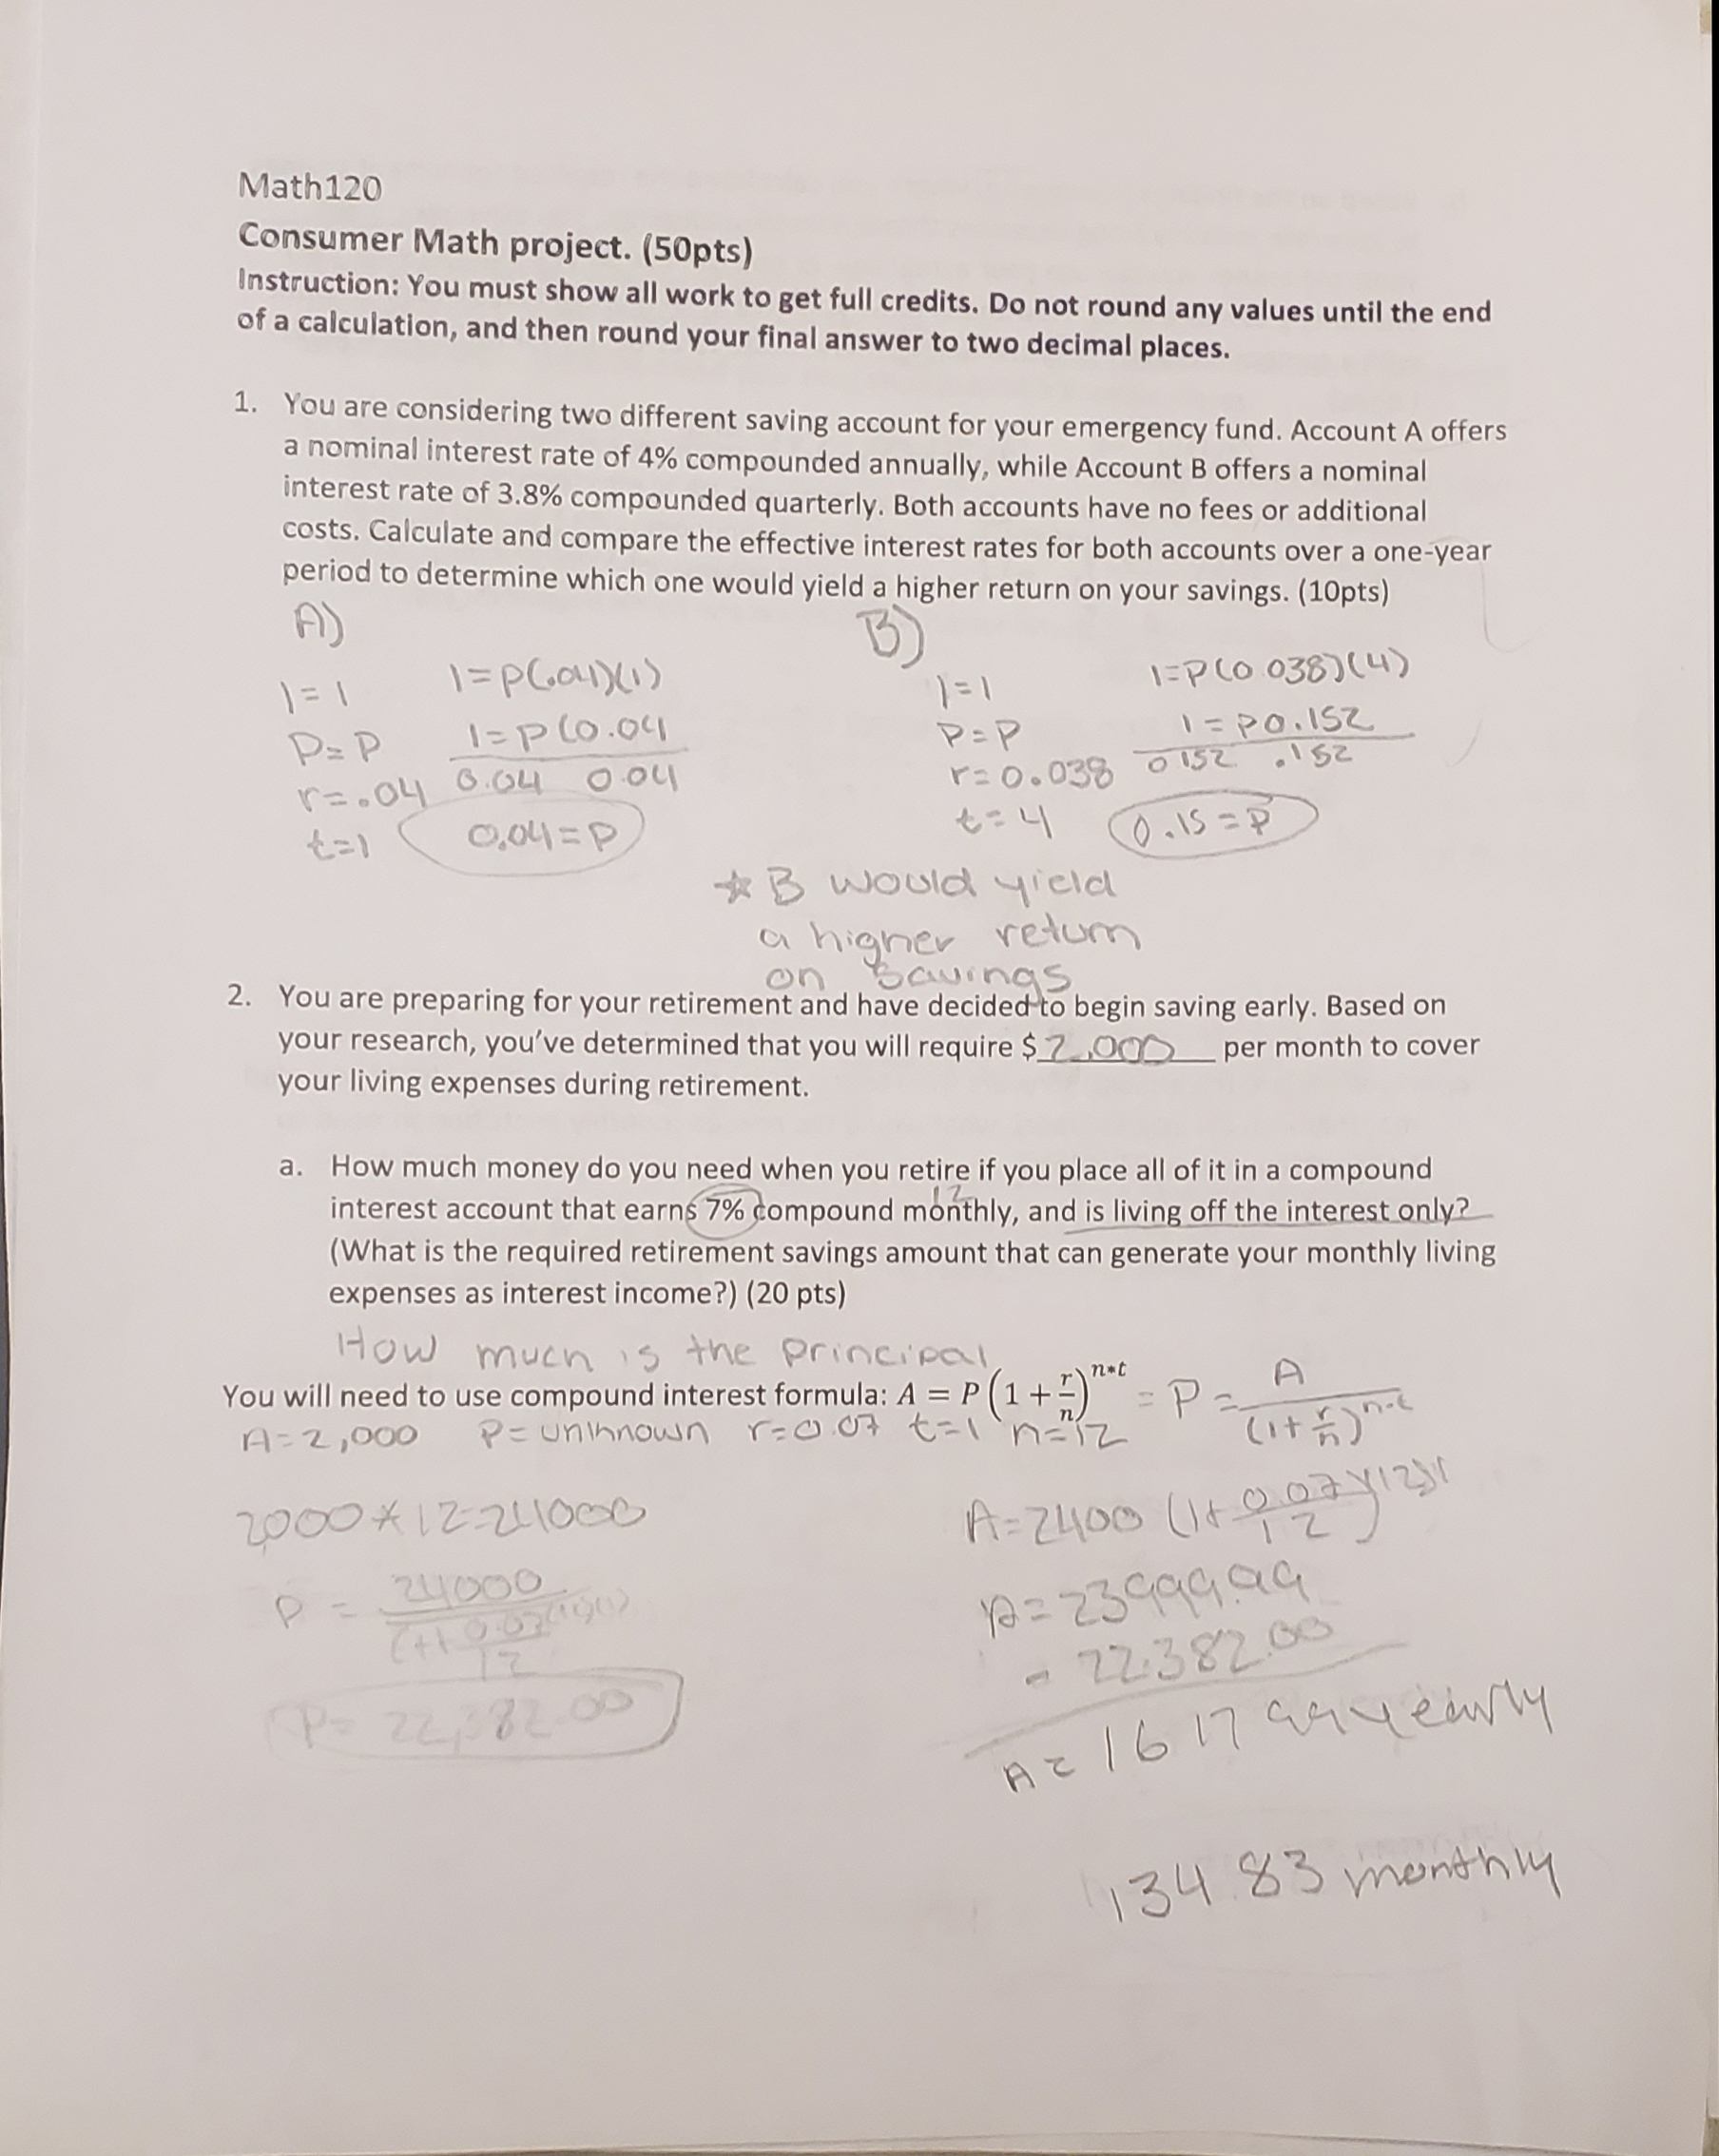 Math120
Consumer Math project. (50pts)
Instruction: You must show all work to get full credits. Do not round any values until the end
of a calculation, and then round your final answer to two decimal places.
1. You are considering two different saving account for your emergency fund. Account A offers
a nominal interest rate of 4% compounded annually, while Account B offers a nominal
interest rate of 3.8% compounded quarterly. Both accounts have no fees or additional
costs. Calculate and compare the effective interest rates for both accounts over a one-year
period to determine which one would yield a higher return on your savings. (10pts)
A)
I=1
P=P
r=.04
t=1
1=P(.04)(1)
1=P(0.04
0.04 0.04
0.04=P
B)
I=1
P=P
r=0.038
t=4
1=P(0.038)(4)
1=P0.152
0152 .152
0.15=P
☆ B would yield
a higher return
on savings
2. You are preparing for your retirement and have decided to begin saving early. Based on
your research, you've determined that you will require $ 2,000 per month to cover
your living expenses during retirement.
a. How much money do you need when you retire if you place all of it in a compound
12
interest account that earns 7% compound monthly, and is living off the interest only?
(What is the required retirement savings amount that can generate your monthly living
expenses as interest income?) (20 pts)
How much is the principal
You will need to use compound interest formula: A = P(1 + r/n)^n*t = P = A/(1+r/n)^n·t
A=2,000 P=unknown r=0.07 t=1 n=12
2,000*12=24000
P = 24000
(1+0.07
12
P= 22,382.00
A=2400 (1+0.07/12)(12)1
A=23999.99
- 22382.00
A= 1617 99 yearly
134.83 monthly